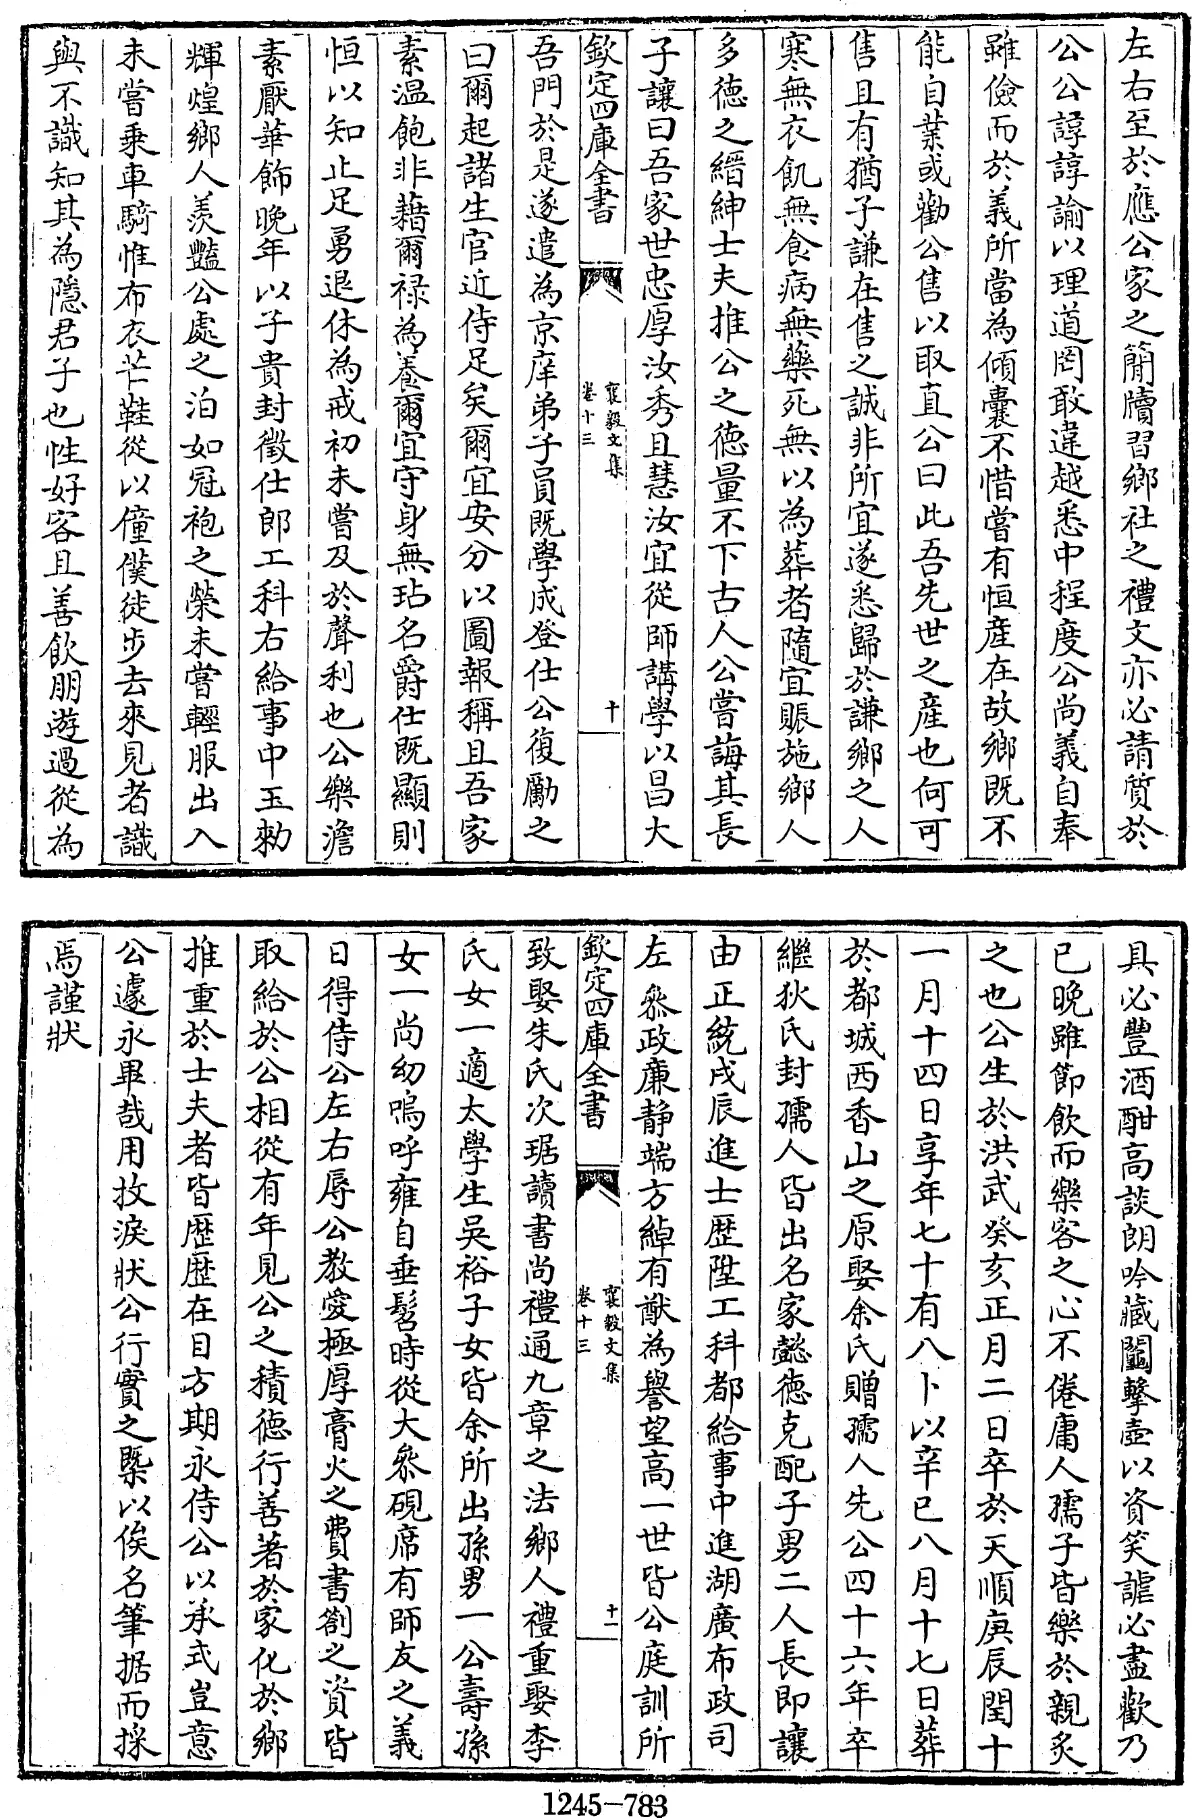 左右至於應公家之簡牘習鄉社之禮文亦必請質於
公公諄諄諭以理道罔敢違越悉中程度公尚義自奉
雖儉而於義所當為傾囊不惜嘗有恒產在故鄉既不
能自業或勸公售以取直公曰此吾先世之產也何可
售且有猶子謙在售之誠非所宜遂悉歸於謙鄉之人
寒無衣飢無食病無藥死無以為葬者隨宜賑施鄉人
多徳之縉紳士夫推公之徳量不下古人公嘗誨其長
子讓曰吾家世忠厚汝秀且慧汝宜從師講學以昌大
欽定四庫全書
襄毅文集
卷十三
十
吾門於是遂遣為京庠弟子員既學成登仕公復勵之
曰爾起諸生官近侍足矣爾宜安分以圖報稱且吾家
素温飽非藉爾禄為養爾宜守身無玷名爵仕既顯則
恒以知止足勇退休為戒初未嘗及於聲利也公樂澹
素厭華飾晚年以子貴封徵仕郎工科右給事中玉勅
輝煌鄉人羨豔公處之泊如冠袍之榮未嘗輕服出入
未嘗乗車騎惟布衣芒鞋從以僮僕徒步去來見者識
與不識知其為隱君子也性好客且善飲朋遊過從為
具必豐酒酣高談朗吟藏鬮擊壺以資笑謔必盡歡乃
已晚雖節飲而樂客之心不倦庸人孺子皆樂於親炙
之也公生於洪武癸亥正月二日卒於天順庚辰閏十
一月十四日享年七十有八卜以辛巳八月十七日葬
於都城西香山之原娶余氏贈孺人先公四十六年卒
繼狄氏封孺人皆出名家懿徳克配子男二人長即讓
由正統戊辰進士歴陞工科都給事中進湖廣布政司
左叅政廉静端方綽有猷為譽望高一世皆公庭訓所
欽定四庫全書
襄毅文集
卷十三
十一
致娶朱氏次琚讀書尚禮通九章之法鄉人禮重娶李
氏女一適太學生吳裕子女皆余所出孫男一公壽孫
女一尚幼嗚呼雍自垂髫時從大叅硯席有師友之義
日得侍公左右辱公教愛極厚膏火之費書劄之資皆
取給於公相從有年見公之積徳行善著於家化於鄉
推重於士夫者皆歴歴在目方期永侍公以承式豈意
公遽永畢哉用抆淚狀公行實之槩以俟名筆据而採
焉謹狀
1245-783